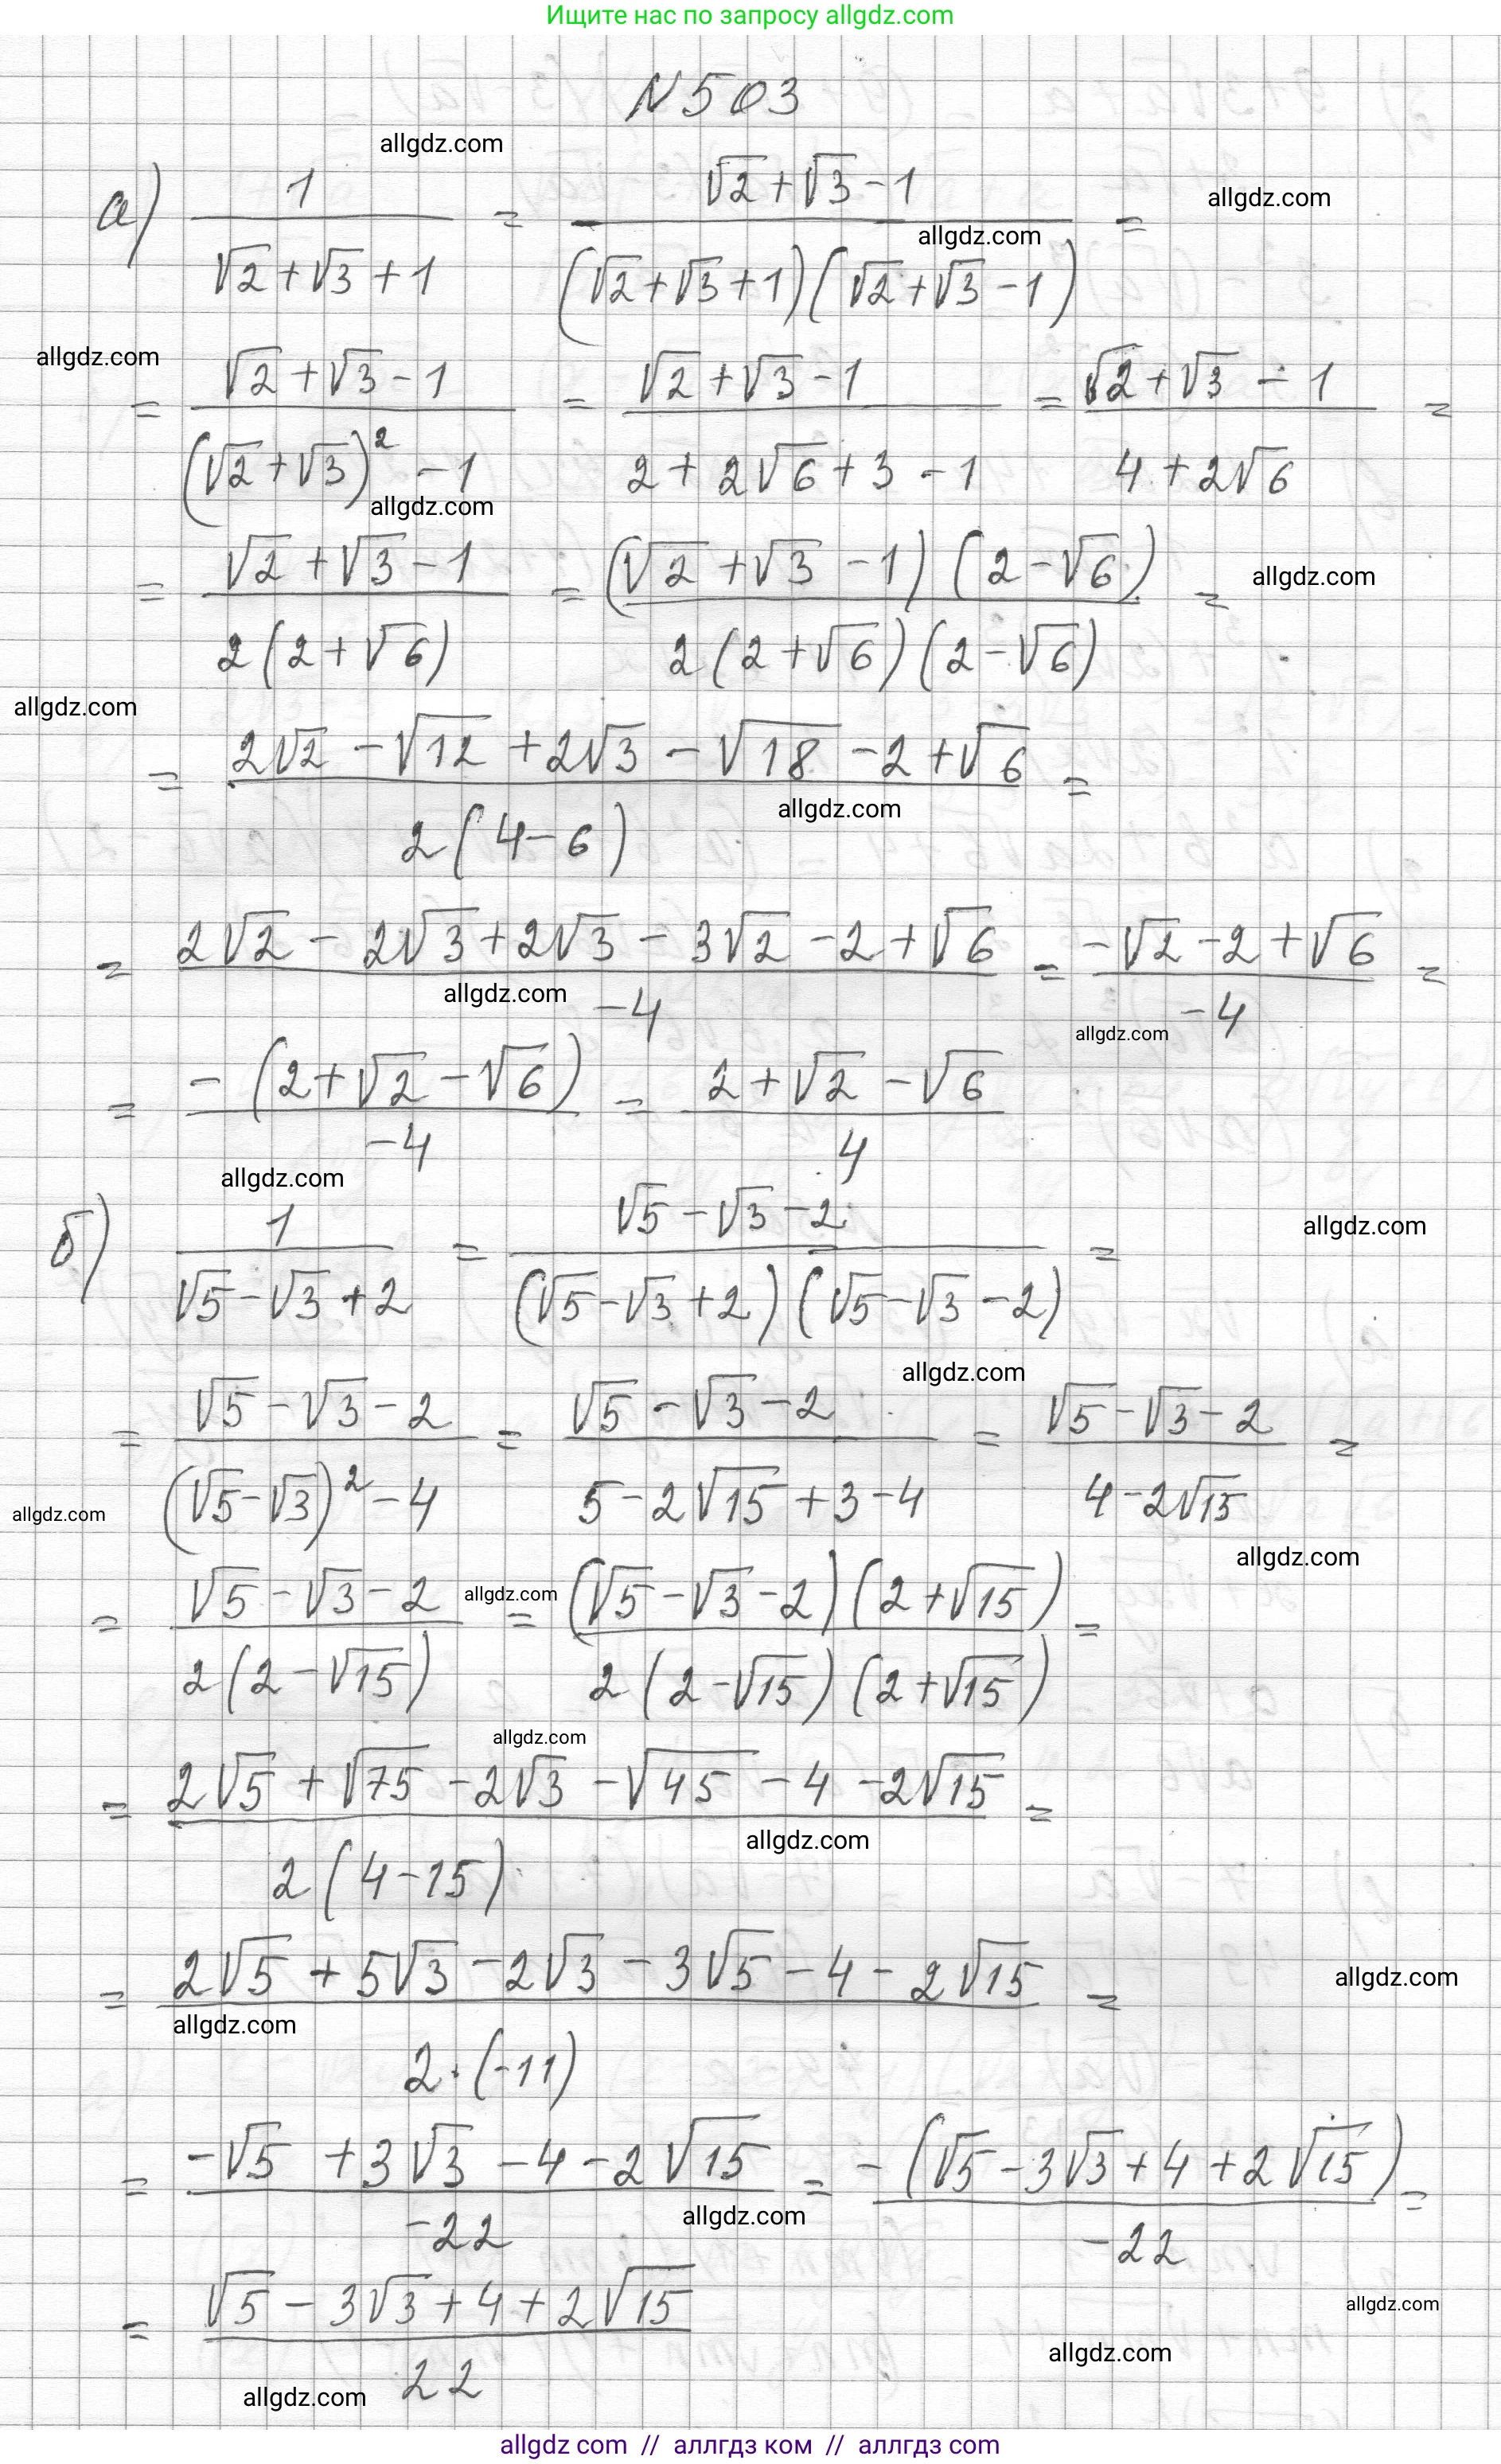 Ищите нас по запросу allgdz.com
N503
allgdz.com
а) 1/(√2+√3+1) = (√2+√3-1)/((√2+√3+1)(√2+√3-1)) =
allgdz.com
allgdz.com
allgdz.com
= (√2+√3-1)/((√2+√3)²-1) = (√2+√3-1)/(2+2√6+3-1) = (√2+√3-1)/(4+2√6) =
allgdz.com
= (√2+√3-1)/(2(2+√6)) = ((√2+√3-1)(2-√6))/(2(2+√6)(2-√6)) =
allgdz.com
allgdz.com
= (2√2-√12+2√3-√18-2+√6)/(2(4-6)) =
allgdz.com
= (2√2-2√3+2√3-3√2-2+√6)/(-4) = (-√2-2+√6)/(-4) =
allgdz.com
allgdz.com
= (-(2+√2-√6))/(-4) = (2+√2-√6)/4
allgdz.com
б) 1/(√5-√3+2) = (√5-√3-2)/((√5-√3+2)(√5-√3-2)) =
allgdz.com
allgdz.com
= (√5-√3-2)/((√5-√3)²-4) = (√5-√3-2)/(5-2√15+3-4) = (√5-√3-2)/(4-2√15) =
allgdz.com
allgdz.com
= (√5-√3-2)/(2(2-√15)) = ((√5-√3-2)(2+√15))/(2(2-√15)(2+√15)) =
allgdz.com
allgdz.com
= (2√5+√75-2√3-√45-4-2√15)/(2(4-15)) =
allgdz.com
= (2√5+5√3-2√3-3√5-4-2√15)/(2·(-11)) =
allgdz.com
allgdz.com
= (-√5+3√3-4-2√15)/(-22) = (-(√5-3√3+4+2√15))/(-22) =
allgdz.com
= (√5-3√3+4+2√15)/22
allgdz.com
allgdz.com
allgdz.com
allgdz com // аллгдз ком // аллгдз com